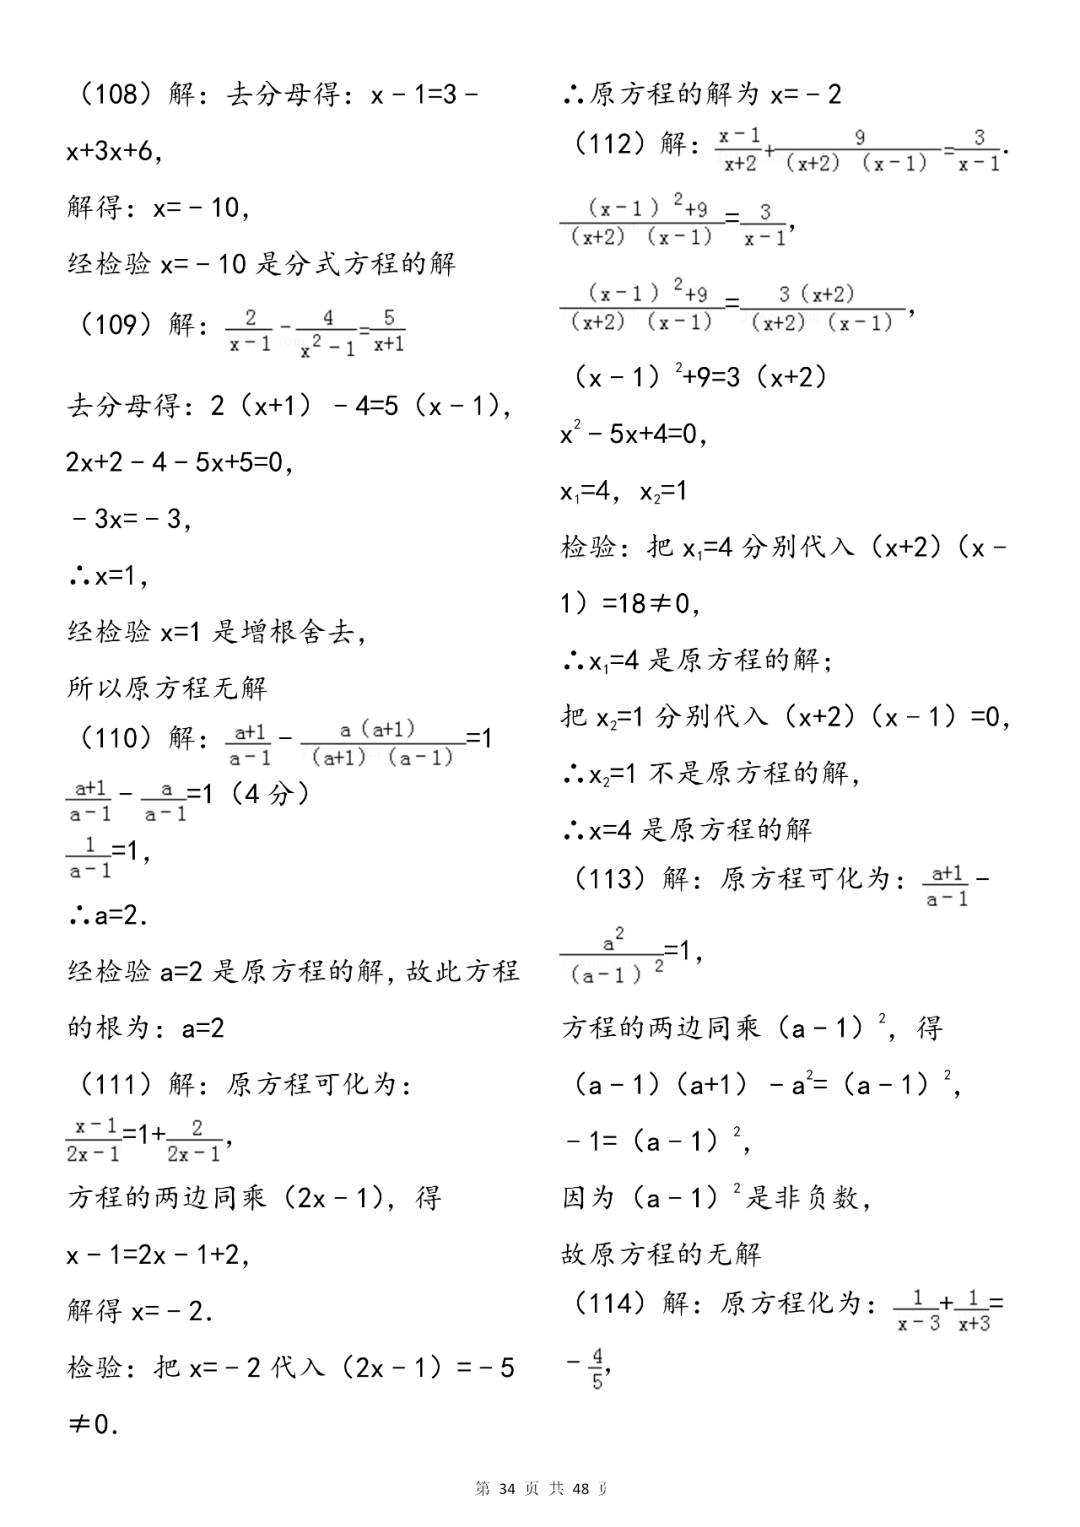 （108）解：去分母得：x﹣1=3﹣
x+3x+6，
解得：x=﹣10，
经检验 x=﹣10 是分式方程的解
（109）解：2/(x﹣1)﹣4/(x²﹣1)=5/(x+1)
去分母得：2（x+1）﹣4=5（x﹣1），
2x+2﹣4﹣5x+5=0，
﹣3x=﹣3，
∴x=1，
经检验 x=1 是增根舍去，
所以原方程无解
（110）解：(a+1)/(a﹣1)﹣a（a+1）/（a+1）（a﹣1）=1
(a+1)/(a﹣1)﹣a/(a﹣1)=1（4 分）
1/(a﹣1)=1，
∴a=2．
经检验 a=2 是原方程的解，故此方程
的根为：a=2
（111）解：原方程可化为：
(x﹣1)/(2x﹣1)=1+2/(2x﹣1)，
方程的两边同乘（2x﹣1），得
x﹣1=2x﹣1+2，
解得 x=﹣2．
检验：把 x=﹣2 代入（2x﹣1）=﹣5
≠0．
∴原方程的解为 x=﹣2
（112）解：(x﹣1)/(x+2)+9/（x+2）（x﹣1）=3/(x﹣1)．
（x﹣1）²+9/（x+2）（x﹣1）=3/(x﹣1)，
（x﹣1）²+9/（x+2）（x﹣1）=3（x+2）/（x+2）（x﹣1），
（x﹣1）²+9=3（x+2）
x²﹣5x+4=0，
x₁=4，x₂=1
检验：把 x₁=4 分别代入（x+2）（x﹣
1）=18≠0，
∴x₁=4 是原方程的解；
把 x₂=1 分别代入（x+2）（x﹣1）=0，
∴x₂=1 不是原方程的解，
∴x=4 是原方程的解
（113）解：原方程可化为：(a+1)/(a﹣1)﹣
a²/（a﹣1）²=1，
方程的两边同乘（a﹣1）²，得
（a﹣1）（a+1）﹣a²=（a﹣1）²，
﹣1=（a﹣1）²，
因为（a﹣1）²是非负数，
故原方程的无解
（114）解：原方程化为：1/(x﹣3)+1/(x+3)=
﹣4/5，
第 34 页 共 48 页